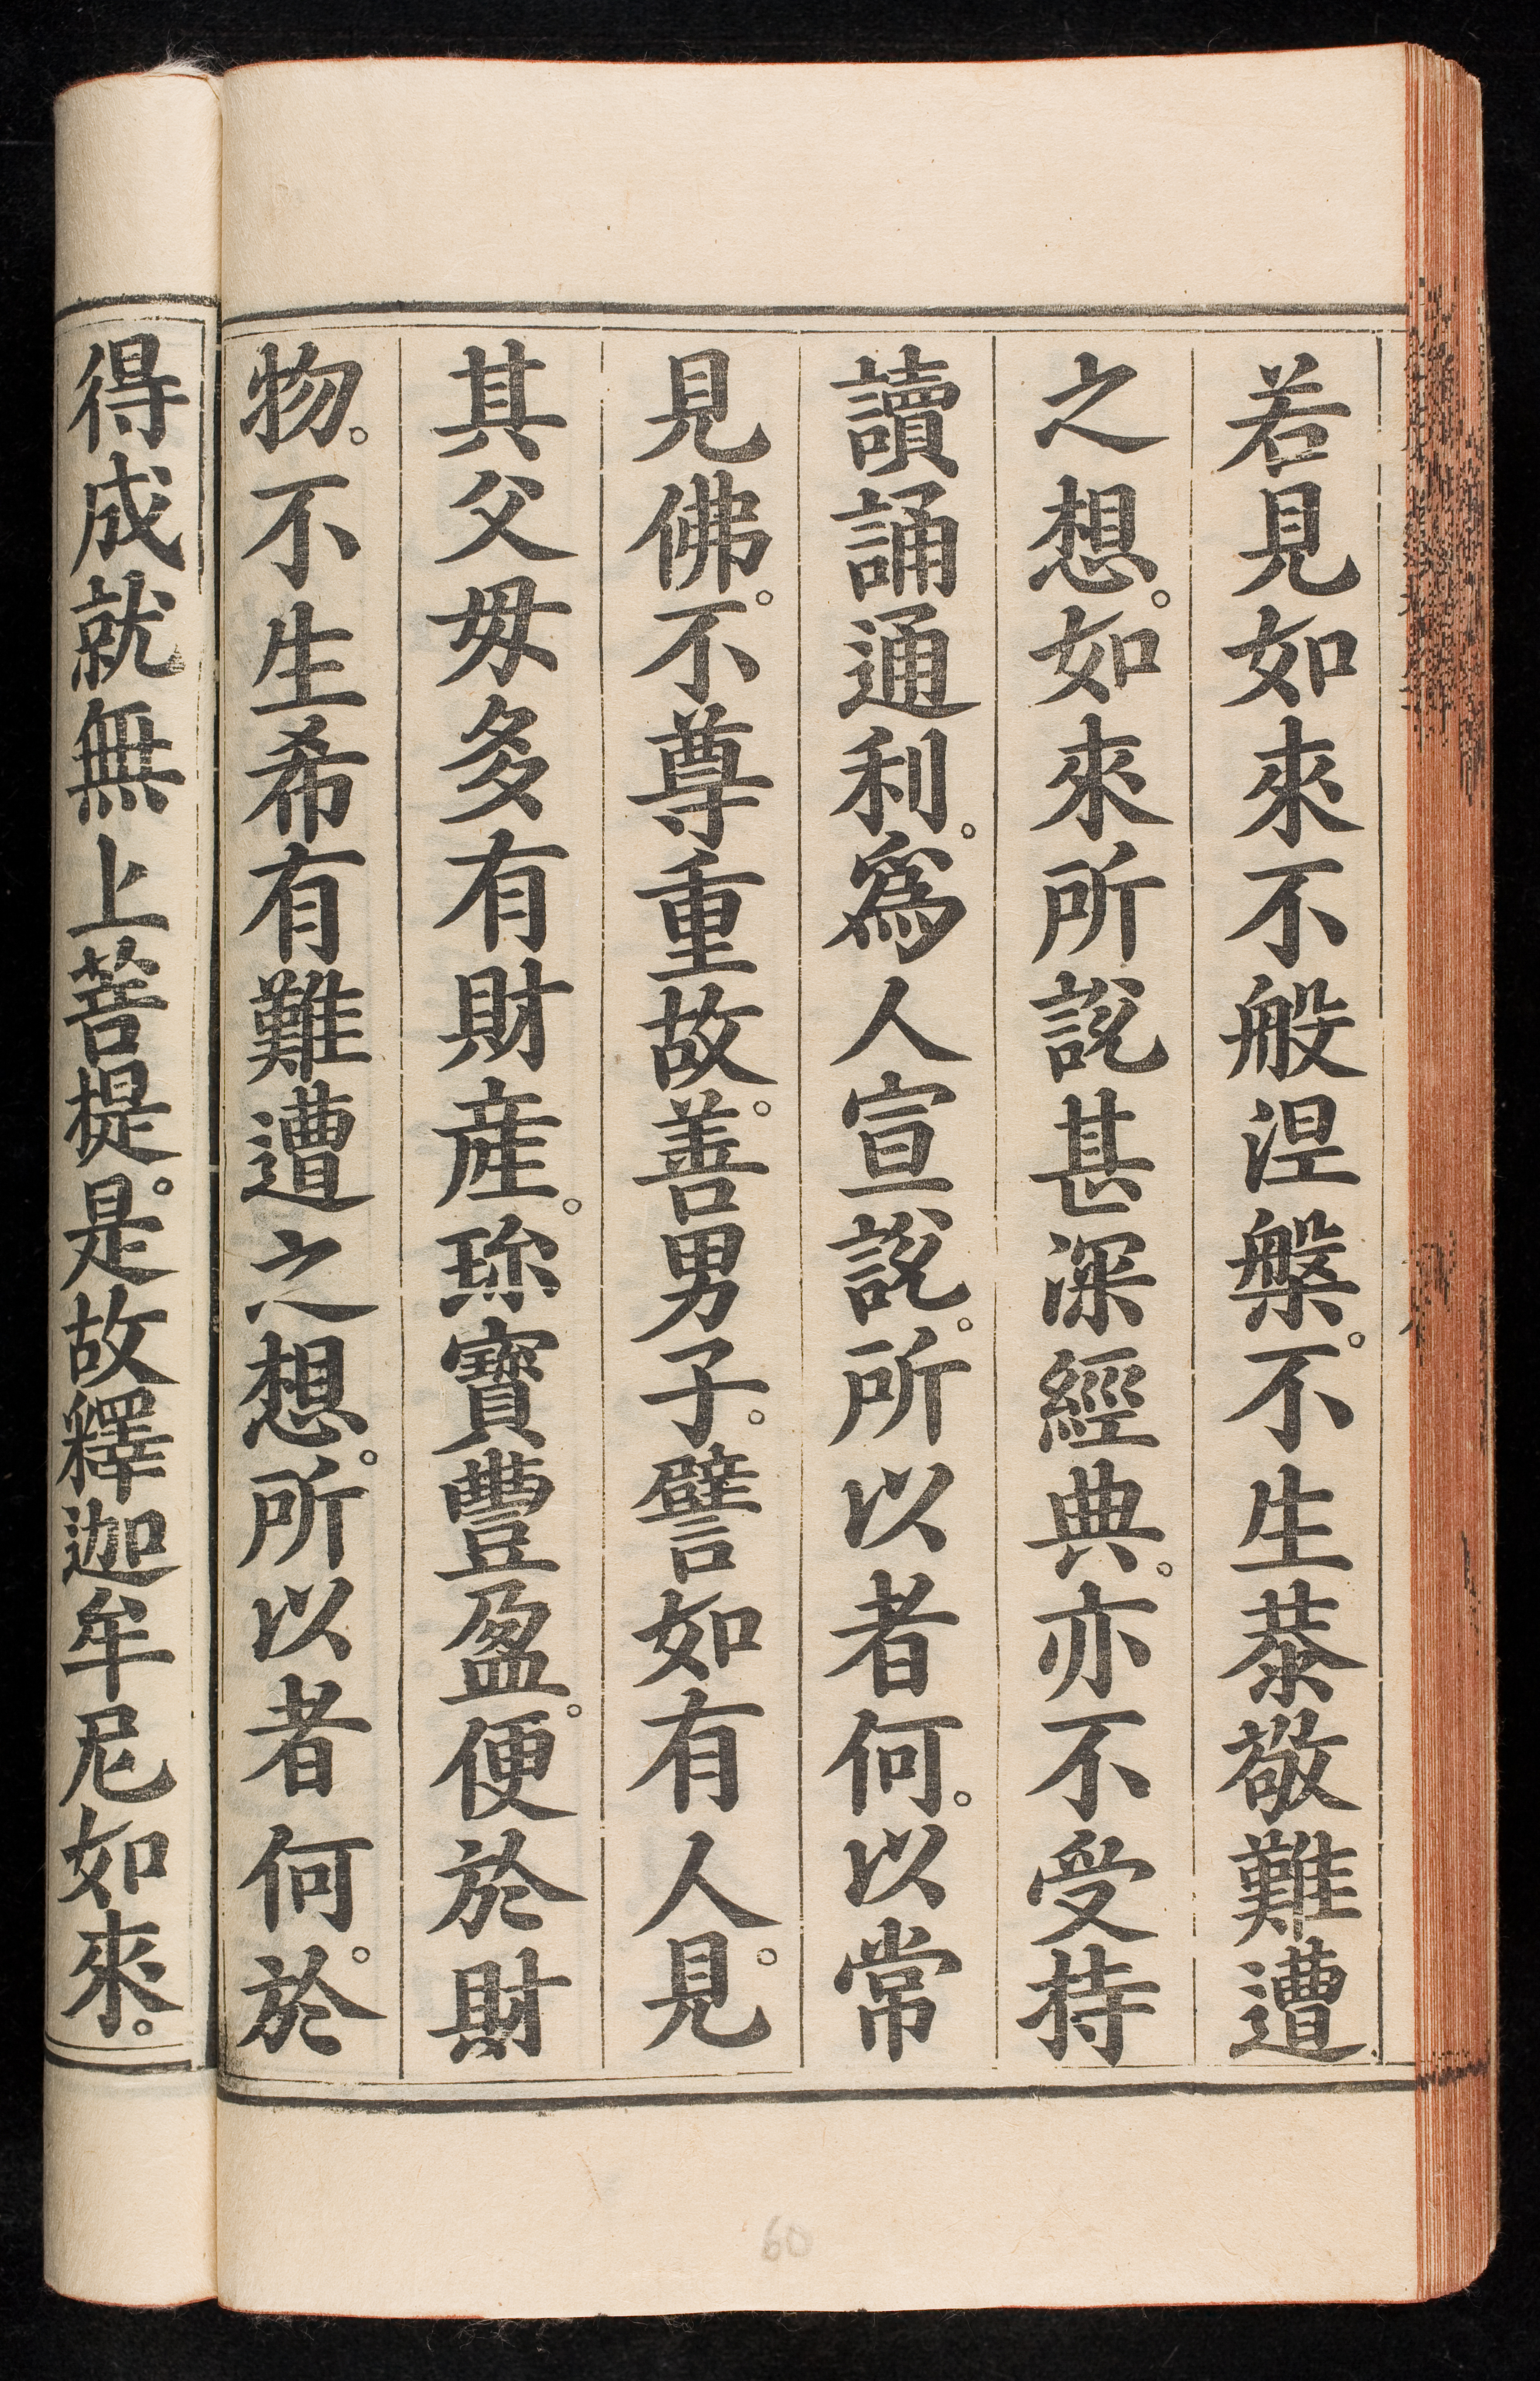 若見如來不般涅槃。不生恭敬難遭
之想。如來所說甚深經典。亦不受持
讀誦通利。為人宣說。所以者何。以常
見佛。不尊重故。善男子。譬如有人。見
其父母多有財產。珎寶豐盈。便於財
物。不生希有難遭之想。所以者何。於
得成就無上菩提。是故釋迦牟尼如來。
60